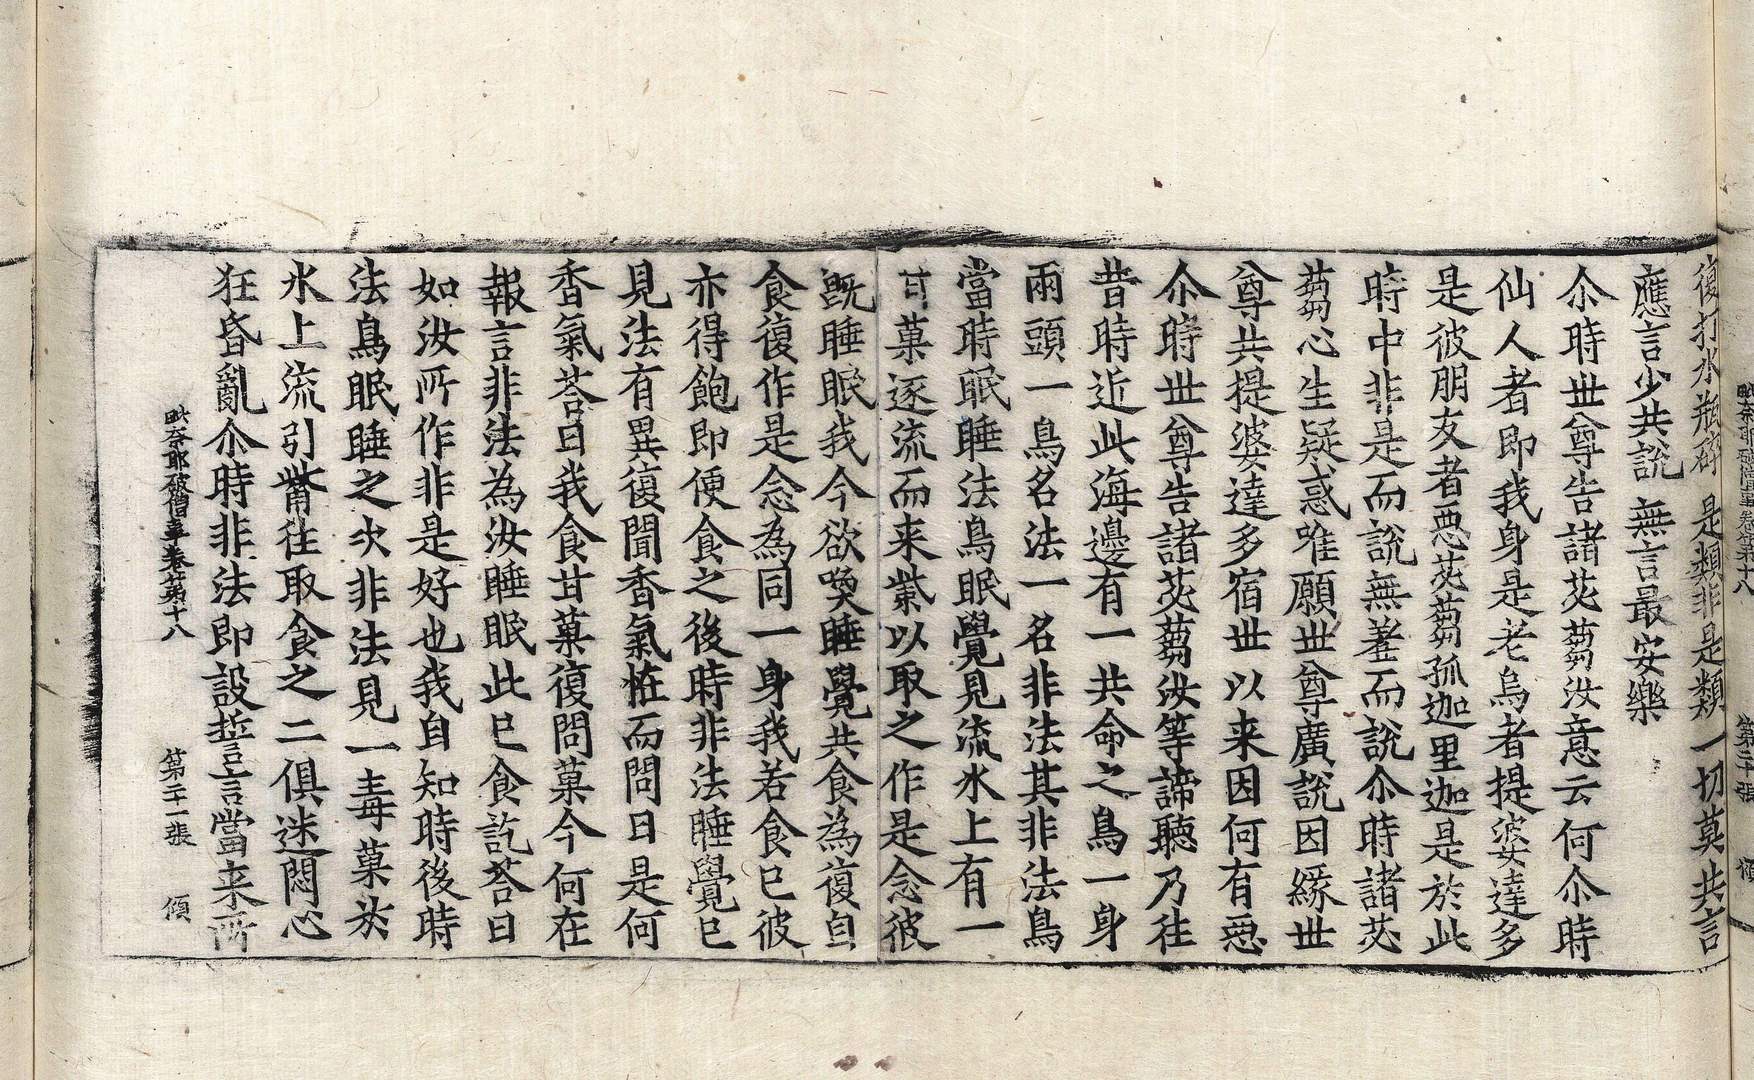 復打水瓶碎 是類非是類 一切莫共言
應言少共說 無言最安樂
尒時世尊告諸苾蒭汝意云何尒時
仙人者即我身是老烏者提婆達多
是彼朋友者惡苾蒭孤迦里迦是於此
時中非是而說無差而說尒時諸苾
蒭心生疑惑唯願世尊廣說因緣世
尊共提婆達多宿世以来因何有惡
尒時世尊告諸苾蒭汝等諦聽乃往
昔時近此海邊有一共命之鳥一身
兩頭一鳥名法一名非法其非法鳥
當時眠睡法鳥眠覺見流水上有一
甘菓逐流而来㭰以取之作是念彼
既睡眠我今欲喚睡覺共食為復自
食復作是念為同一身我若食已彼
亦得飽即便食之後時非法睡覺已
見法有異復聞香氣恠而問曰是何
香氣荅曰我食甘菓復問菓今何在
報言非法為汝睡眠此已食訖荅曰
如汝所作非是好也我自知時後時
法鳥眠睡之次非法見一毒菓於
水上流引觜往取食之二俱迷悶心
狂昏亂尒時非法即設誓言當来所
毗奈耶破僧事卷第十八 第二十一張 傾